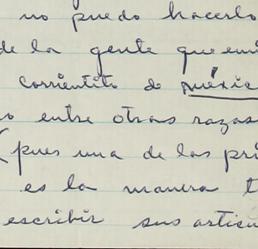 no puedo hacerlo
de la gente que emi
corrientito de méxic
o entre otras razas
(pues una de las pri
es la manera t
escribir sus articu